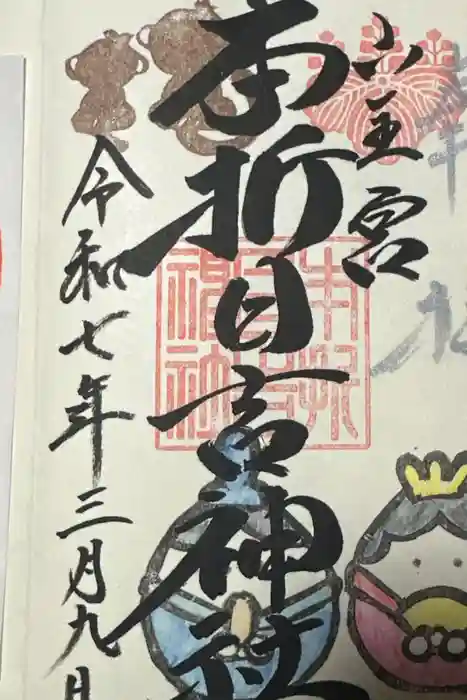 山王宮
本折日吉神社
本折
日吉
神社
令和七年三月九日